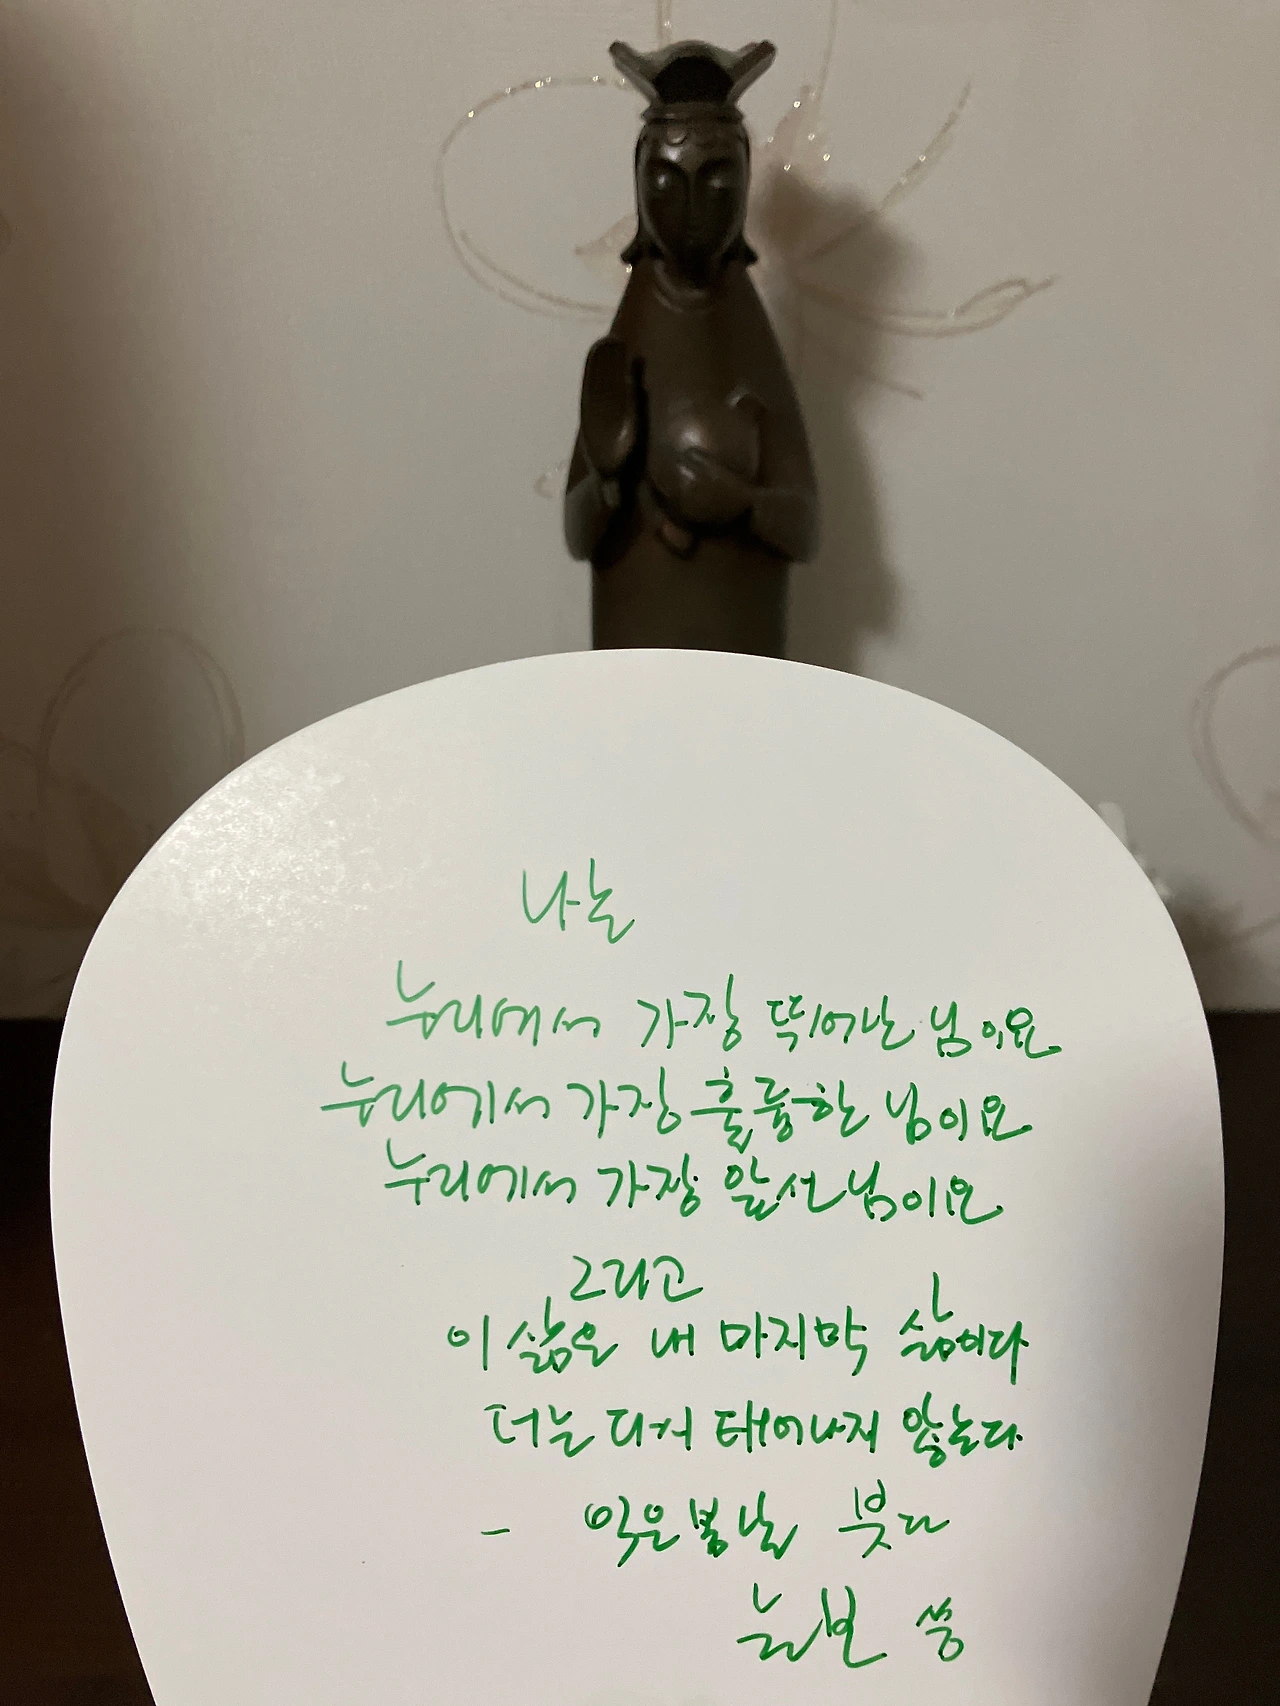 나는
누리에서 가장 뛰어난 님이요
누리에서 가장 훌륭한 님이요
누리에서 가장 앞선 님이요
그리고
이 삶은 내 마지막 삶이다
더는 다시 태어나지 않는다
- 익은봄날 붓다
늘보 씀